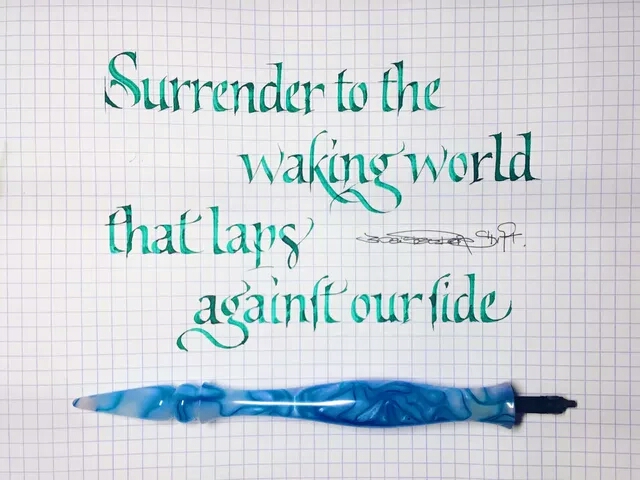 Surrender to the
waking world
that laps
againſt our ſide